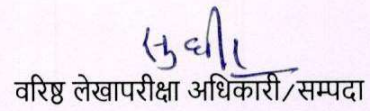 सुधीर
वरिष्ठ लेखापरीक्षा अधिकारी/सम्पदा